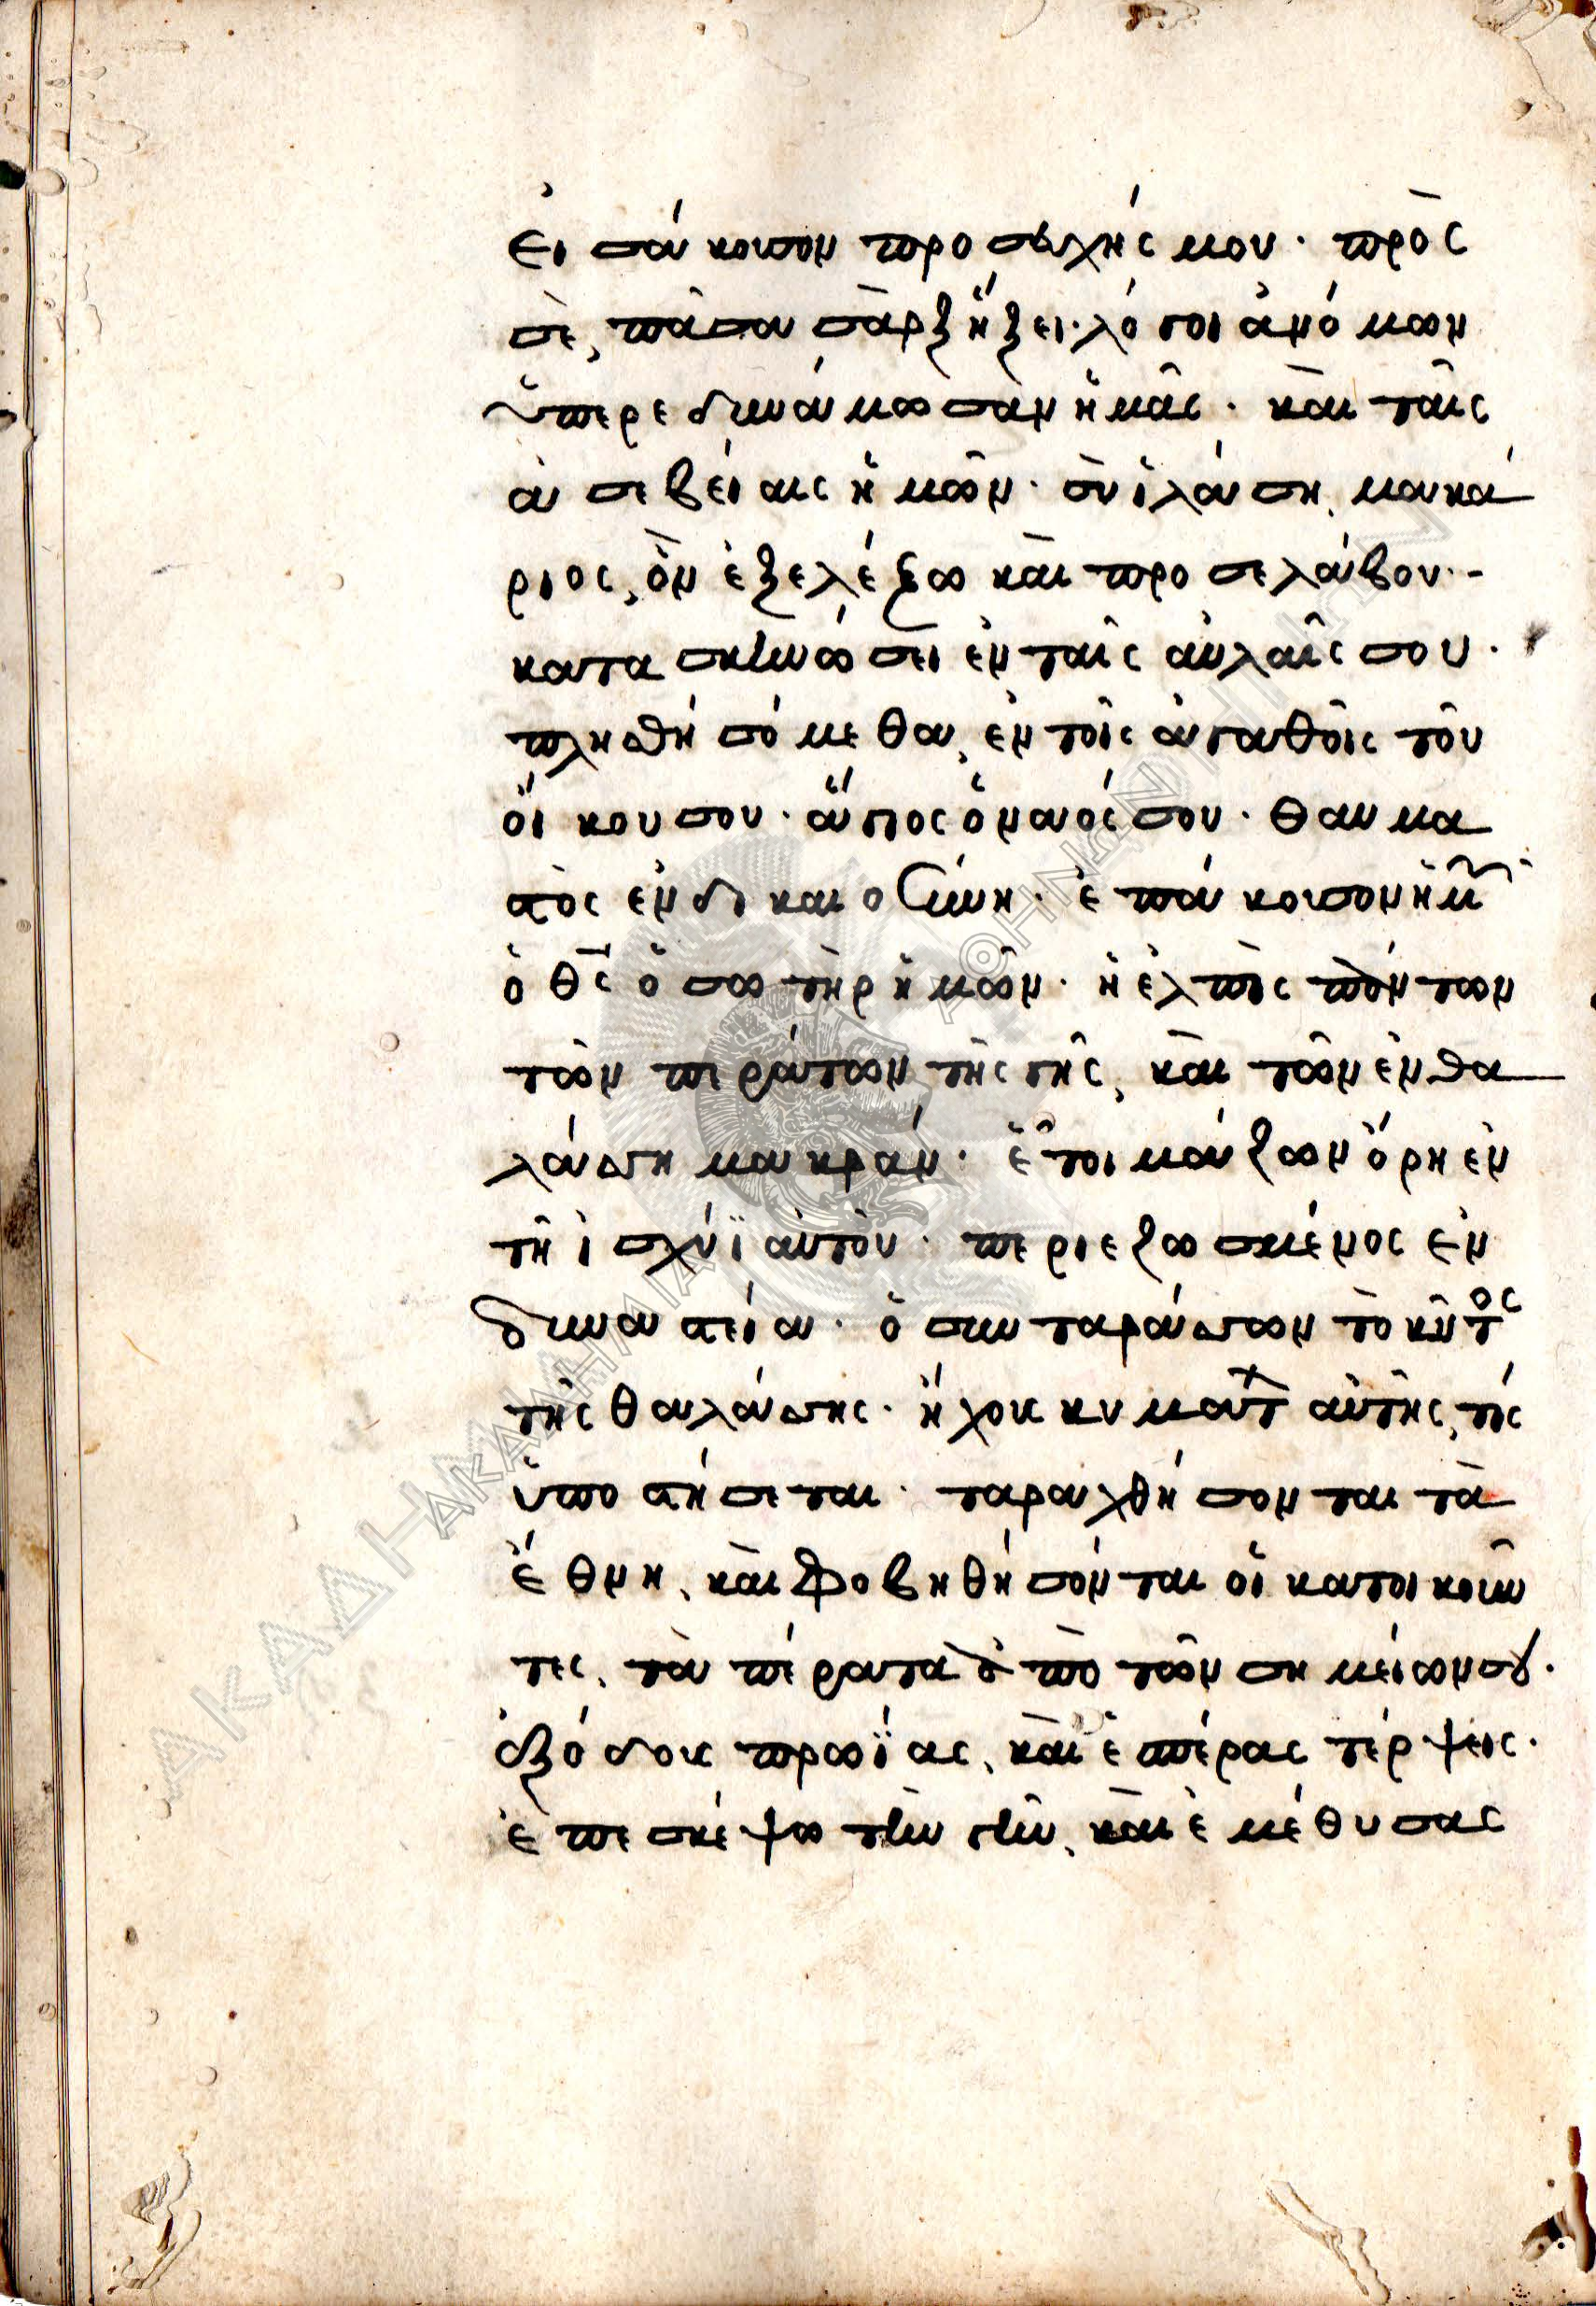 Εἰσάκουσον προσευχῆς μου· πρὸς
σὲ, πᾶσα σὰρξ ἥξει· λόγοι ἀνόμων
ὑπερεδυνάμωσαν ἡμᾶς· καὶ ταῖς
ἀσεβείαις ἡμῶν· σὺ ἱλάση, μακά
ριος, ὃν ἐξελέξω καὶ προσελάβου·-
κατασκηνώσει ἐν ταῖς αὐλαῖς σου·
πλησθησόμεθα, ἐν τοῖς ἀγαθοῖς τοῦ
οἴκου σου· ἅγιος ὁ ναός σου· θαυμα
στὸς ἐν δικαιοσύνη· ἐπάκουσον ἡμ
ὁ θς ὁ σωτὴρ ἡμῶν· ἡ ἐλπὶς πάντων
τῶν περάτων τῆς γῆς, καὶ τῶν ἐν θα
λάσση μακράν· ἑτοιμάζων ὄρη ἐν
τῆ ἰσχύϊ αὐτοῦ· περιεζωσμένος ἐν
δυναστεία· ὁ συνταράσσων τὸ κῦτος
τῆς θαλάσσης· ἤχους κυματ αὐτῆς, τίς
ὑποστήσεται· ταραχθήσονται τὰ
ἔθνη, καὶ φοβηθήσονται οἱ κατοικοῦν
τες, τὰ πέρατα ἀπὸ τῶν σημείων σου·
ἐξόδους πρωΐας, καὶ ἑσπέρας τέρψεις·
ἐπεσκέψω τὴν γῆν, καὶ ἐμέθυσας
ΑΚΑΔΗΜΙΑ
ΑΚΑΔΗΜΙΑ ΑΘΗΝΩΝ